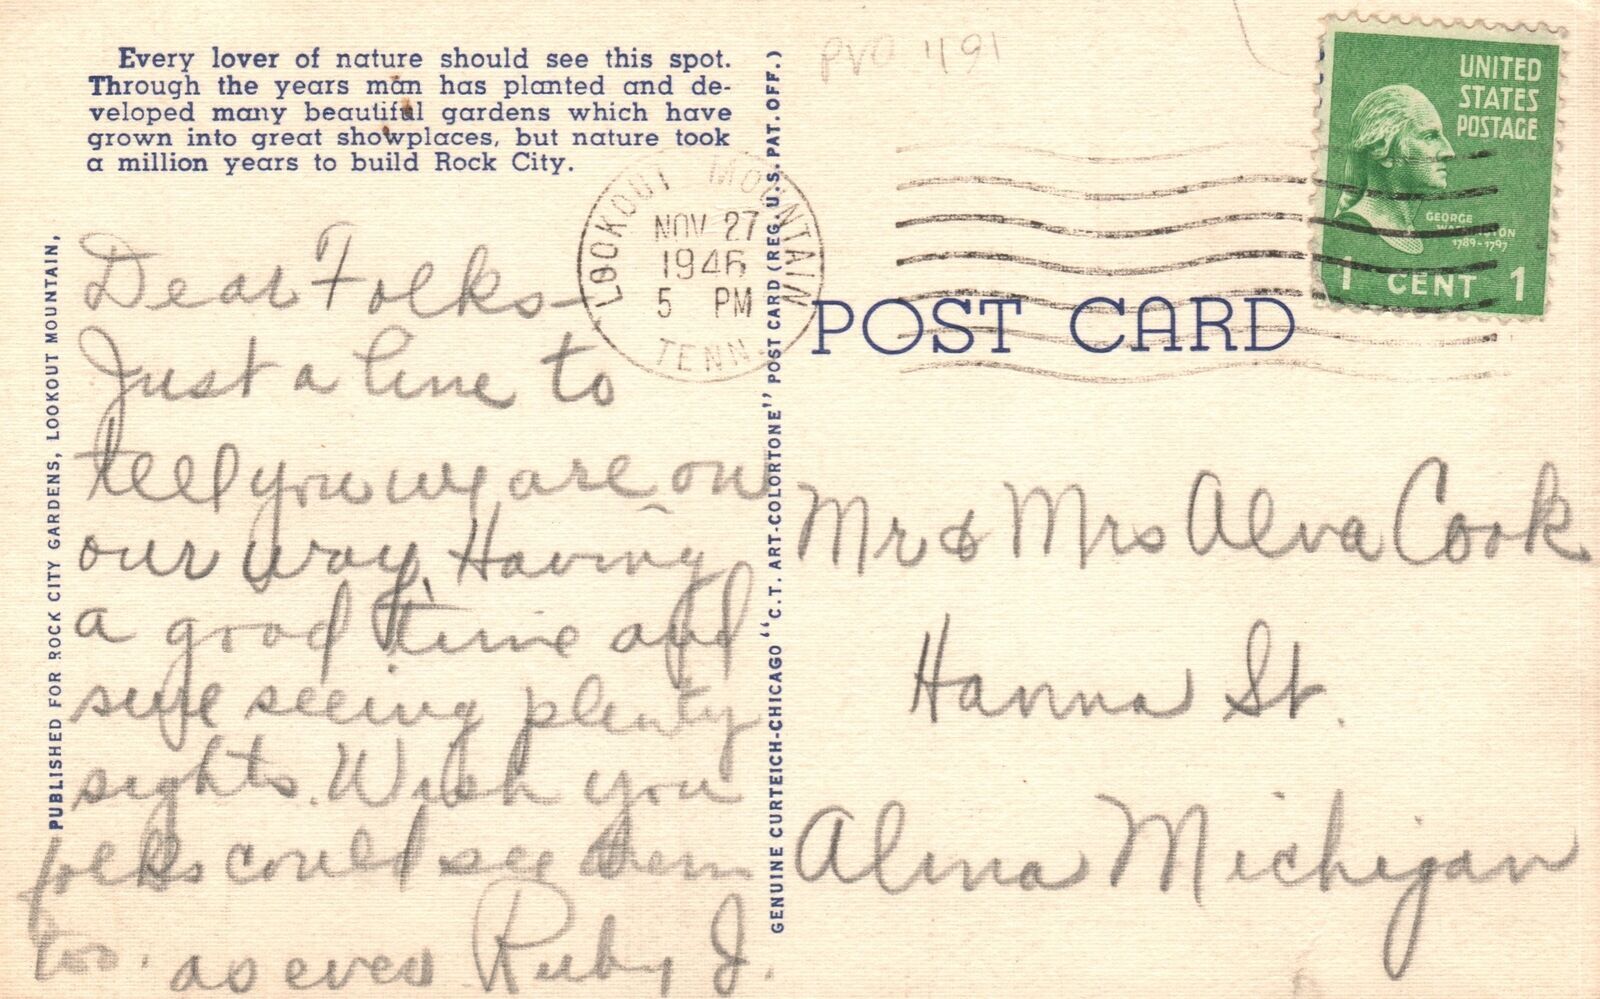 Every lover of nature should see this spot.
Through the years man has planted and de-
veloped many beautiful gardens which have
grown into great showplaces, but nature took
a million years to build Rock City.
PUBLISHED FOR ROCK CITY GARDENS, LOOKOUT MOUNTAIN,
Dear Folks-
Just a line to
tell you we are on
our way. Having
a good time and
sure seeing plenty
sights. Wish you
folks could see them
too. as ever Ruby J.
GENUINE CURTEICH-CHICAGO "C.T. ART-COLORTONE" POST CARD (REG. U.S. PAT. OFF.)
PVO 1191
LOOKOUT MOUNTAIN
NOV 27
1946
5 PM
TENN.
UNITED
STATES
POSTAGE
GEORGE
WASHINGTON
1789-1797
1 CENT 1
POST CARD
Mr & Mrs Alva Cook
Hanna St.
Alma Michigan